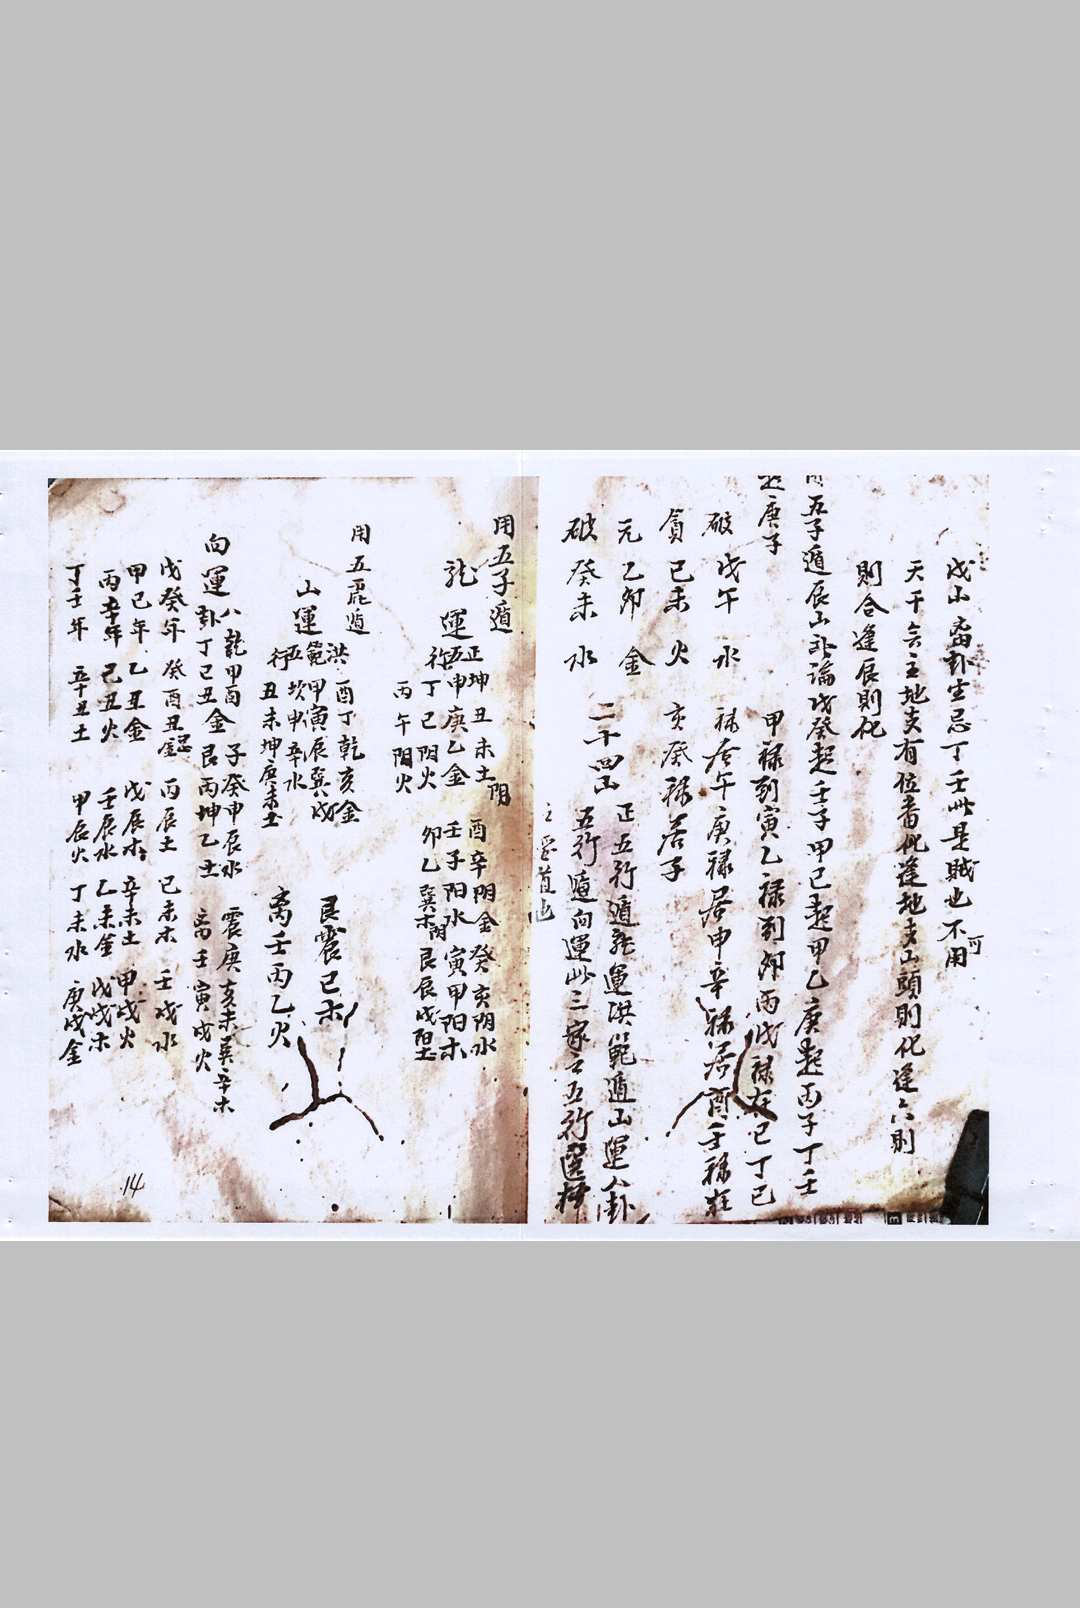 戊山
丁壬此是賊也不可用
天干
地支有位者化逢地支山頭則化逢六則
則合逢辰則化
用五子遁辰山
論戊癸起壬子甲己起甲乙庚起丙子丁壬
起庚子
甲祿到寅乙祿到卯丙戊祿在巳丁己
破戊午水
祿居午庚祿居申辛祿居酉壬祿在
貪己未火
亥癸祿居子
元乙卯金
二十四山
正五行遁龍運洪範遁山運八卦
破癸未水
五行遁向運此三家之五行選擇
用五子遁
龍運
正五行
坤丑未土陰
酉辛陰金癸亥陰水
申庚乙金
壬子陽水寅甲陽木
丁巳陰火
卯乙巽木陰艮辰戌陽土
丙午陽火
用五虎遁
山運
洪範五行
酉丁乾亥金
艮震巳木
甲寅辰巽戌
坎申辛水
離壬丙乙火
丑未坤庚未土
向運
八卦
乾甲
子癸申辰水
震庚亥未巽辛木
丁巳丑金
艮丙坤乙土
離壬寅戌火
戊癸年
癸酉丑金忌
丙辰土
己未木
壬戌水
甲己年
乙丑金
戊辰木
辛未土
甲戌火
丙辛年
己丑火
壬辰水
乙未金
戊戌木
丁壬年
辛丑土
甲辰火
丁未水
庚戌金
14